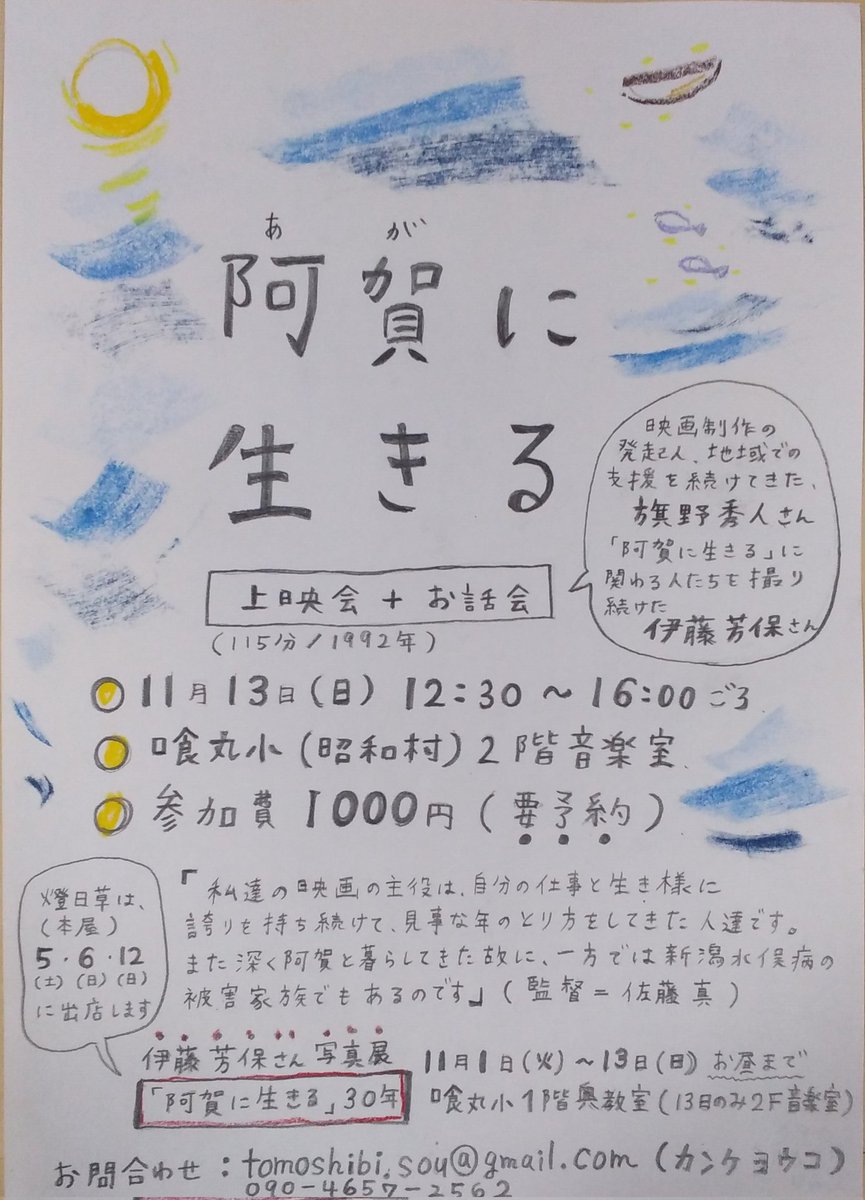 あが
阿賀に
生きる
上映会 + お話会
(115分/1992年)
映画制作の
発起人、地域での
支援を続けてきた、
旗野秀人さん
「阿賀に生きる」に
関わる人たちを撮り
続けた
伊藤芳保さん
11月13日(日) 12:30 〜 16:00ごろ
喰丸小 (昭和村) 2階音楽室
参加費 1000円 (要予約)
「私達の映画の主役は、自分の仕事と生き様に
誇りを持ち続けて、見事な年のとり方をしてきた人達です。
また深く阿賀と暮らしてきた故に、一方では新潟水俣病の
被害家族でもあるのです」(監督=佐藤真)
燈日草は、
(本屋)
5・6・12
(土)(日)(日)
に出店します
伊藤芳保さん 写真展
「阿賀に生きる」30年
11月1日(火)〜13日(日)お昼まで
喰丸小1階奥教室(13日のみ2F音楽室)
お問合わせ:tomoshibi.sou@gmail.com (カンケヨウコ)
090-4657-2562